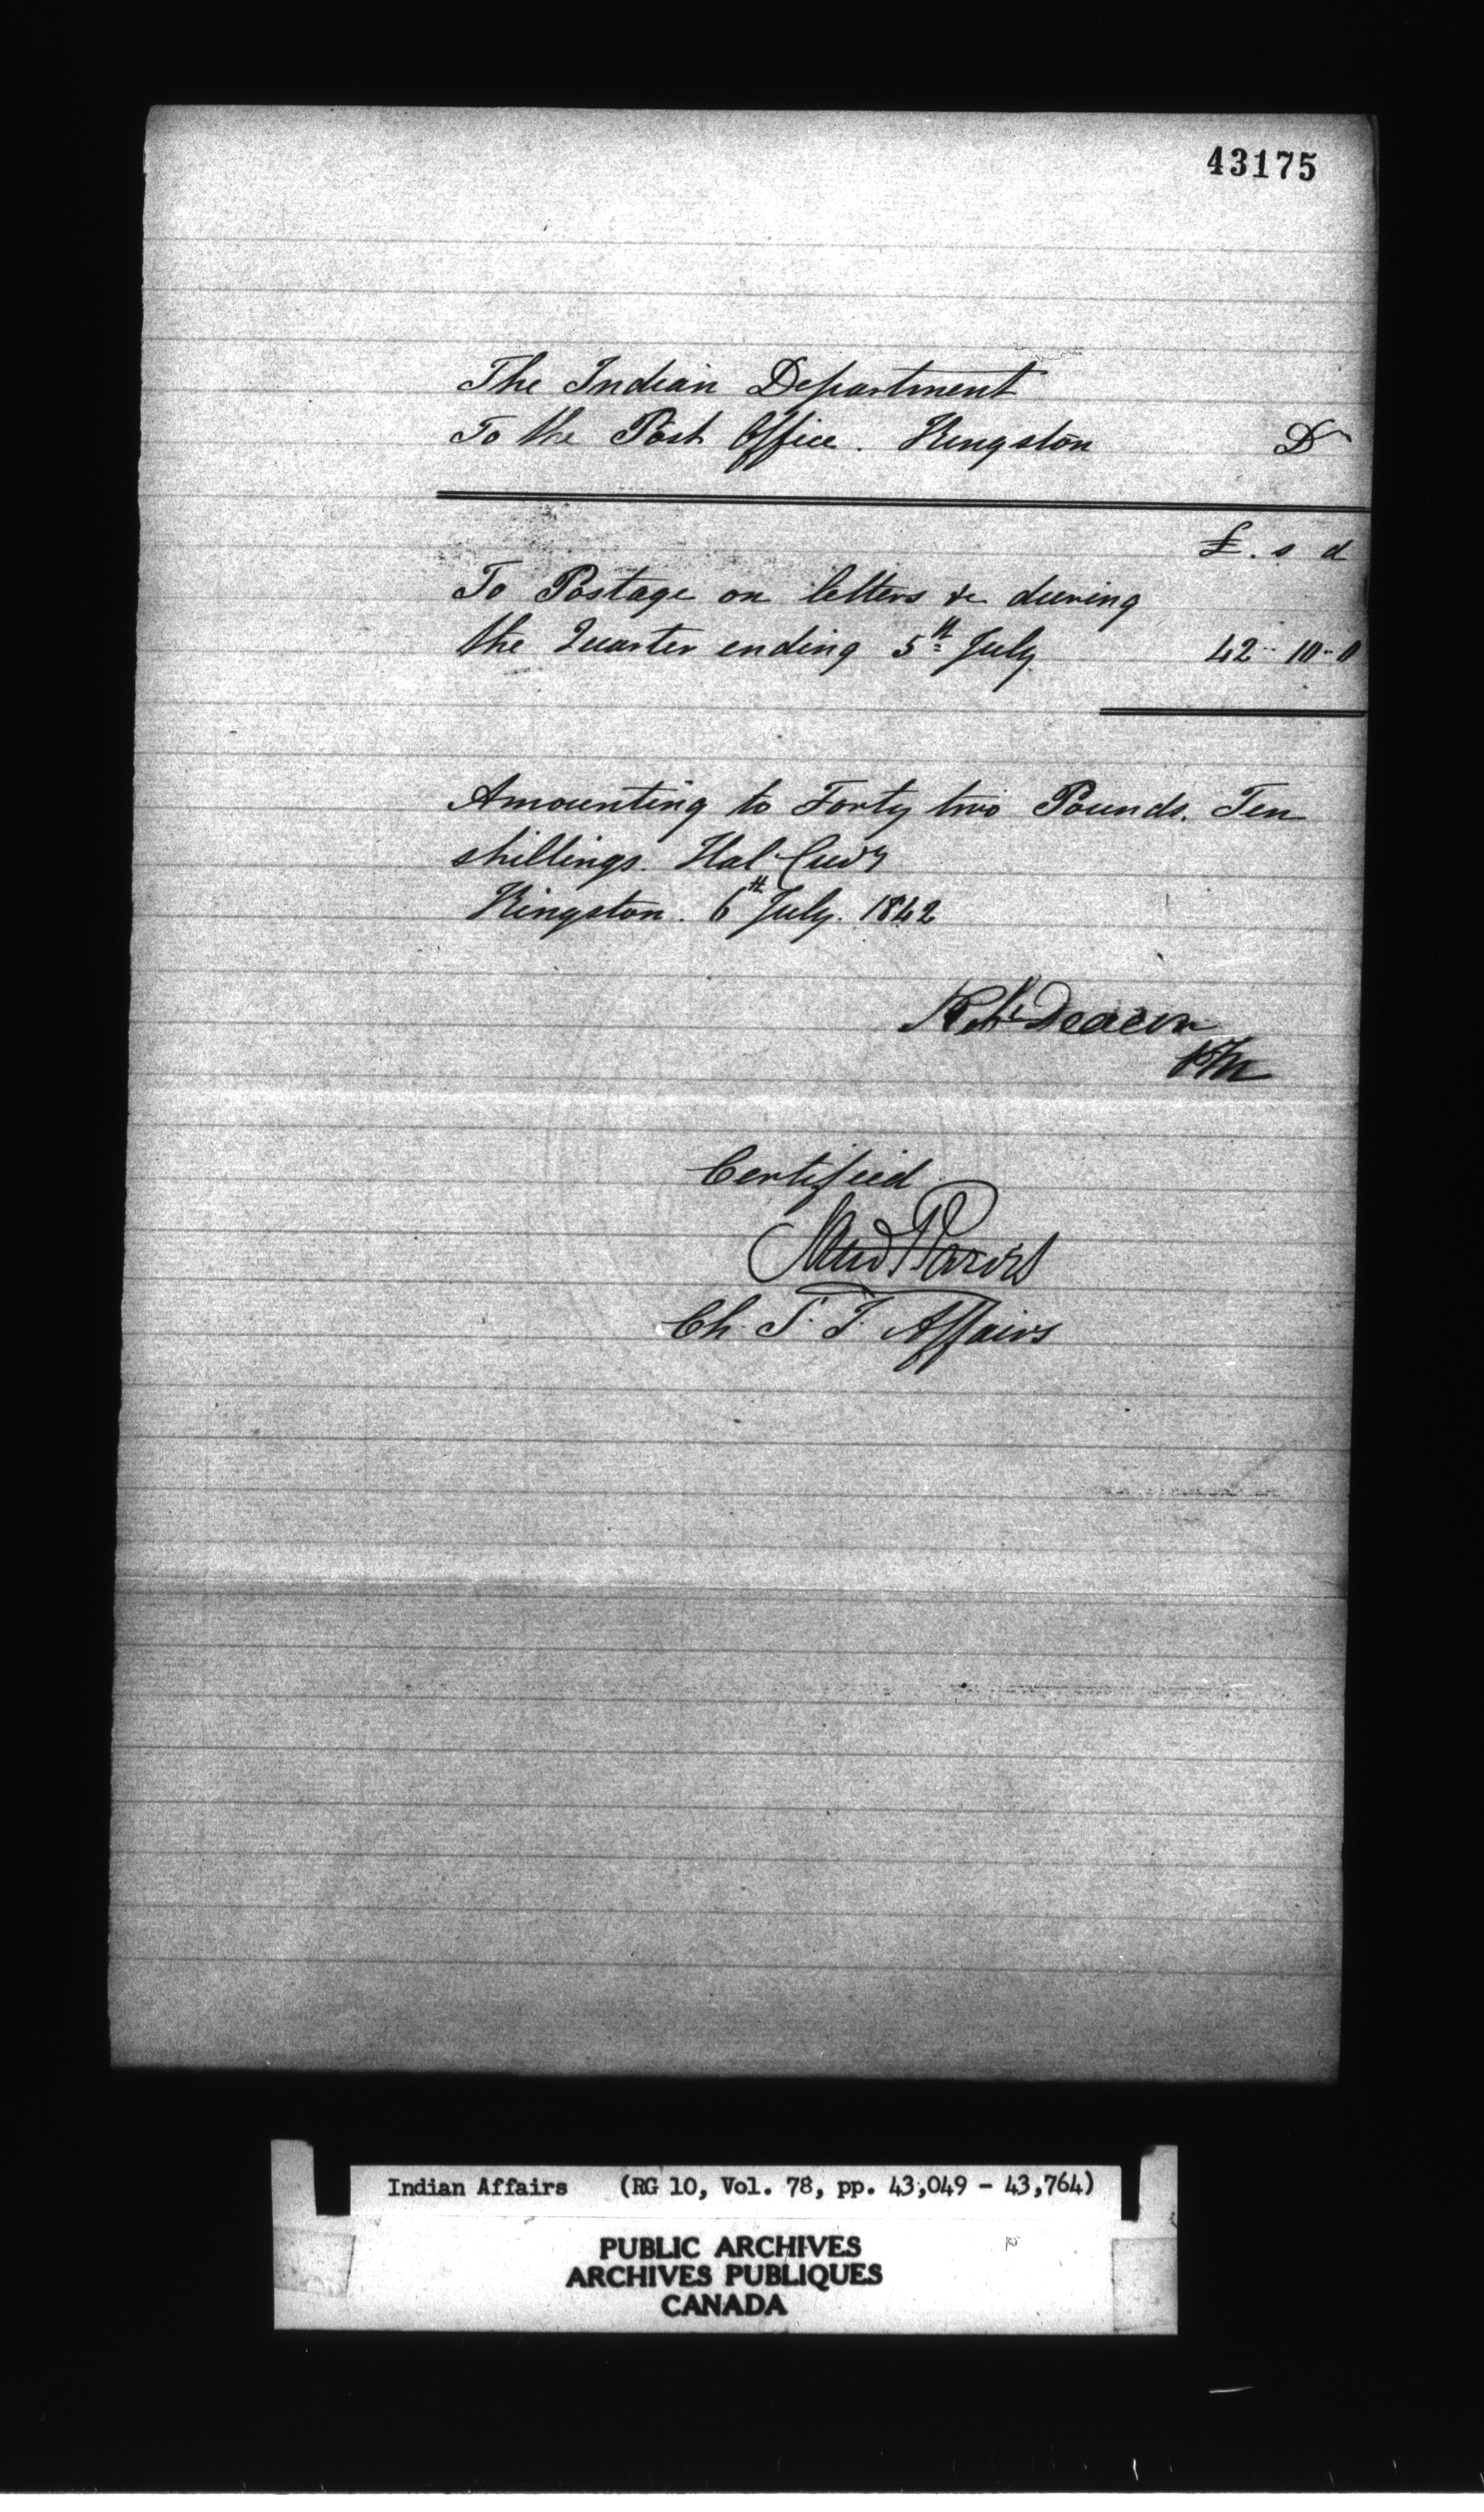 43175
The Indian Department
To the Post Office. Kingston Dr
£. s d
To Postage on letters &c during
the Quarter ending 5th July 42 10 0
Amounting to Forty two Pounds. Ten
shillings. Hal Curcy
Kingston. 6th July. 1842
Robt Deacon
PM
Certified
Ch. S. I. Affairs
Indian Affairs (RG 10, Vol. 78, pp. 43,049 - 43,764)
PUBLIC ARCHIVES
ARCHIVES PUBLIQUES
CANADA